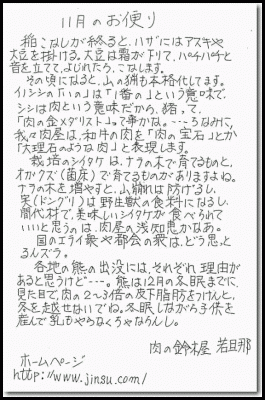 11月のお便り
稲こなしが終ると、ハザにはアズキや
大豆を掛ける。大豆は霜が下りて、パチパチと
音を立てて、よじれたら、こなします。
その頃になると、山の猟も本格化してます。
イノシシの「いの」は「1番の」という意味で
シシは肉という意味だから、猪って、
「肉の金メダリスト」って事かな。---ちなみに、
我々肉屋は、和牛の肉を「肉の宝石」とか
「大理石のような肉」と表現します。
栽培のシイタケは、ナラの木で育てるものと、
オガクズ(菌床)で育てるものがありますよね。
ナラの木を増やすと、山崩れは防げるし、
実(ドングリ)は野生獣の食料になるし、
間伐材で、美味しいシイタケが食べられて
いいと思うのは、肉屋の浅知恵かなあ。
国のエライ衆や都会の衆は、どう思ってるんズラ。
各地の熊の出没には、それぞれ理由が
あると思うけど---。熊は12月の冬眠までに、
見た目で、肉の2〜3倍の皮下脂肪をつけんと、
冬を越せないでね。冬眠しながら子供を
産んで乳もやらなくちゃならんし。
肉の鈴木屋 若旦那
ホームページ
http://www.jinsu.com/